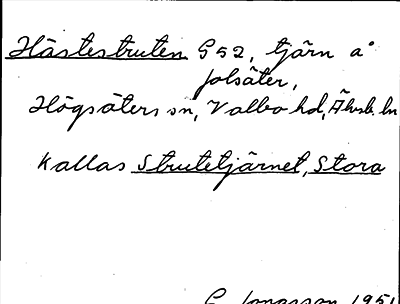 Hästestruten G52, tjärn å
Jolsäter,
Högsäters sn, Valbo hd, Älvsb. ln
Kallas Strutetjärnet, Stora
G. Jonasson 1951